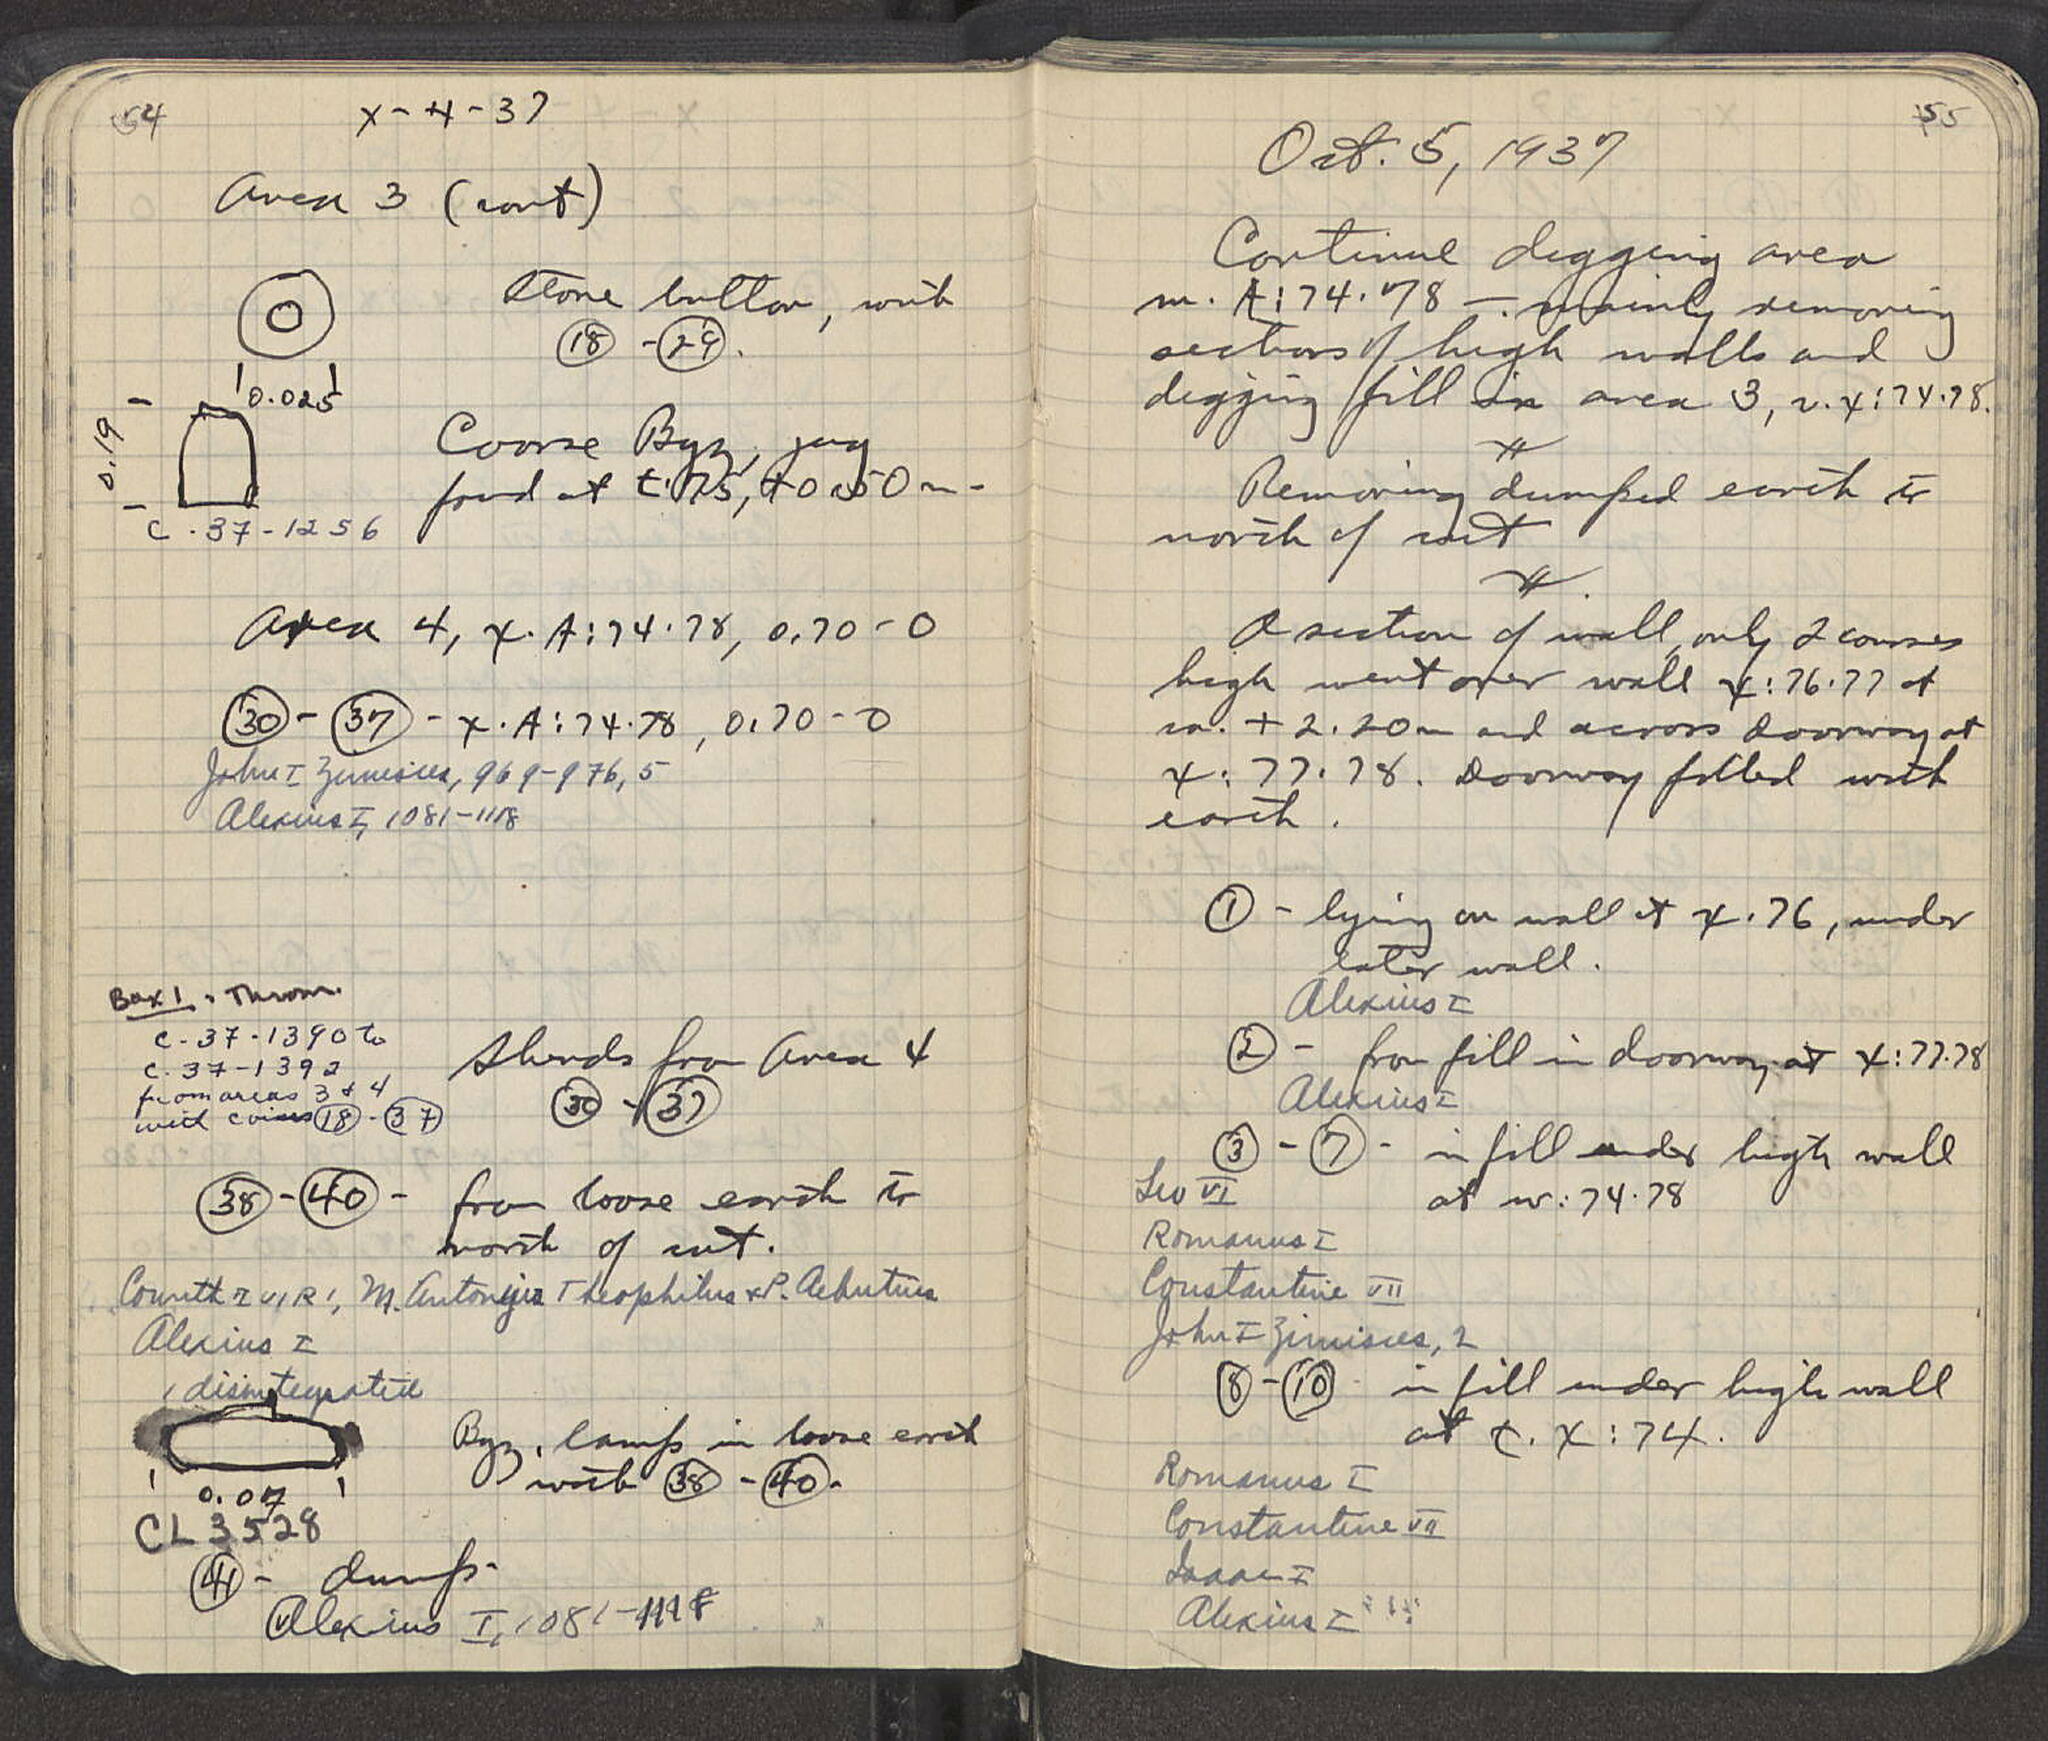 54
X-4-37
Area 3 (cont)
Stone button, with
(18) - (29).
0.025
0.19
Coarse Byz. jug
found at t.75, +0.50 m.
C.37-1256
Area 4, x.A:74.78, 0.70-0
(30) - (37) - x.A:74.78, 0.70-0
John I Zimisces, 969-976, 5
Alexius I, 1081-1118
Box 1. Throw.
C.37-1390 to
C.37-1392
from areas 3 & 4
with coins (18) - (37)
Sherds from Area 4
(30) - (37)
(38) - (40) - from loose earth to
north of cut.
Corinth II VIRI, M. Antonius Theophilus & P. Aebutius
Alexius I
1 disintegrated
Byz. lamp in loose earth
with (38) - (40).
0.07
CL 3528
(41) - dump.
Alexius I, 1081-1118
55
Oct. 5, 1937
Continue digging area
m.A:74.78 - mainly removing
sections of high walls and
digging fill in area 3, v.x:74.78.
Removing dumped earth to
north of cut
A section of wall, only 2 courses
high went over wall x:76.77 at
ca. +2.20m and across doorway at
x:77.78. Doorway filled with
earth.
(1) - lying on wall at x.76, under
later wall.
Alexius I
(2) - from fill in doorway at x:77.78
Alexius I
(3) - (7) - in fill under high wall
at w:74.78
Leo VI
Romanus I
Constantine VII
John I Zimisces, 2
(8) - (10) in fill under high wall
at t.x:74.
Romanus I
Constantine VII
Isaac I
Alexius I